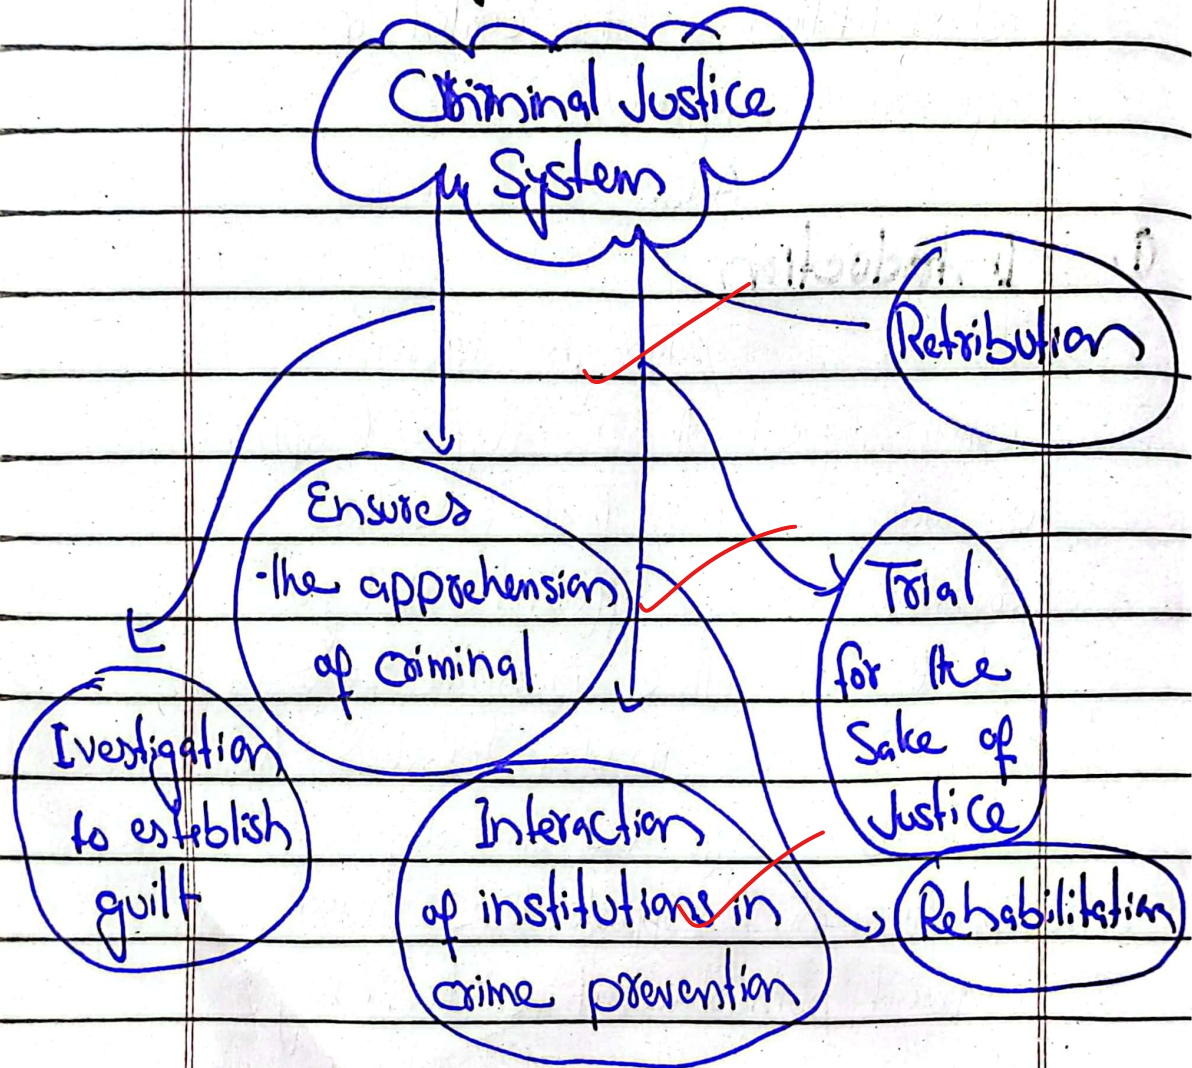 Criminal Justice
System
Retribution
Ensures
the apprehension
of criminal
Trial
for the
Sake of
Justice
Ivestigation
to esteblish
guilt
Interaction
of institutions in
crime prevention
Rehabilitation